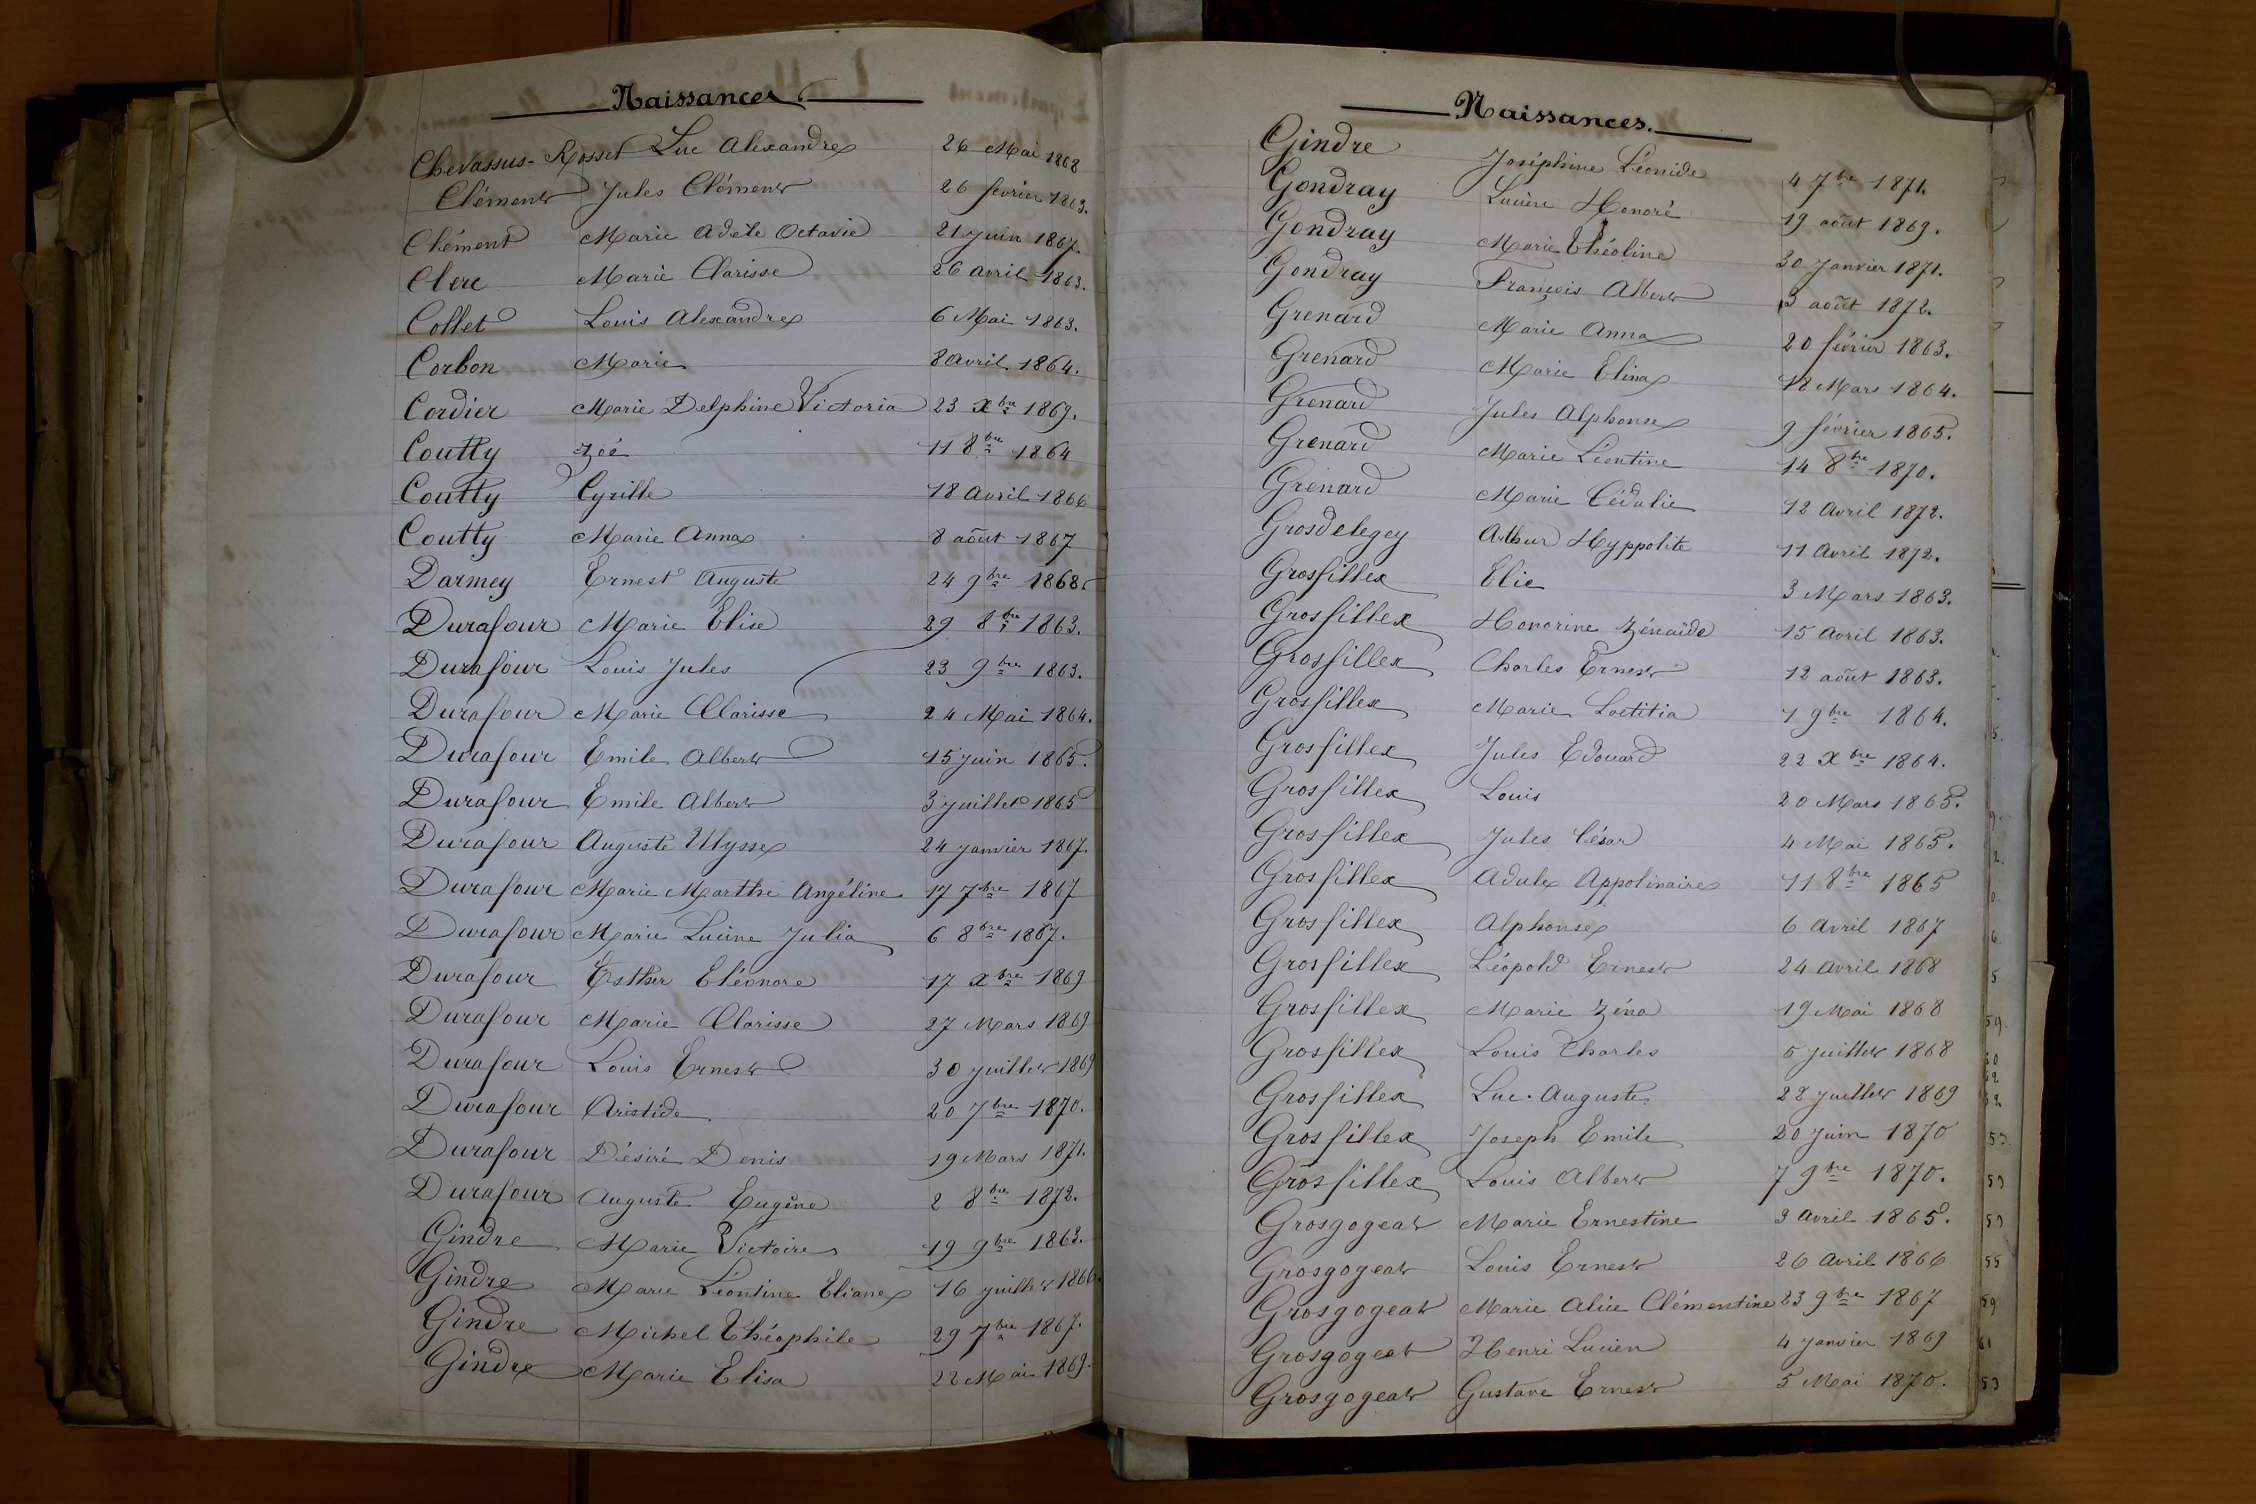 Naissances.
Chevassus-Rosset Luc Alexandre 26 Mai 1868
Clément Jules Clément 26 février 1863.
Clément Marie Adèle Octavie 21 juin 1867.
Clerc Marie Clarisse 26 avril 1863.
Collet Louis Alexandre 6 Mai 1863.
Corbon Marie 8 avril 1864.
Cordier Marie Delphine Victoria 23 Xbre 1869.
Coutty Zoé 11 8bre 1864
Coutty Cyrille 18 avril 1866
Coutty Marie Anna 8 août 1867
Darmey Ernest Auguste 24 9bre 1868.
Durafour Marie Elise 29 8bre 1863.
Durafour Louis Jules 23 9bre 1863.
Durafour Marie Clarisse 24 Mai 1864.
Durafour Emile Albert 15 juin 1865.
Durafour Emile Albert 3 juillet 1865
Durafour Auguste Ulysse 24 janvier 1867.
Durafour Marie Marthe Angéline 17 7bre 1867
Durafour Marie Lucine Julia 6 8bre 1867.
Durafour Esther Eléonore 17 Xbre 1869
Durafour Marie Clarisse 27 Mars 1869
Durafour Louis Ernest 30 juillet 1869
Durafour Aristide 20 7bre 1870.
Durafour Désiré Denis 19 Mars 1871.
Durafour Auguste Eugène 2 8bre 1872.
Gindre Marie Victoire 19 9bre 1863.
Gindre Marie Léontine Eliane 16 juillet 1866.
Gindre Michel Théophile 29 7bre 1867.
Gindre Marie Elisa 22 Mai 1869.
Naissances.
Gindre Joséphine Léonide 4 7bre 1871.
Gondray Lucien Honoré 19 août 1869.
Gondray Marie Théoline 30 Janvier 1871.
Gondray François Albert 3 août 1872.
Grenard Marie Anna 20 février 1863.
Grenard Marie Elina 18 Mars 1864.
Grenard Jules Alphonse 9 février 1865.
Grenard Marie Léontine 14 8bre 1870.
Grenard Marie Cédalie 12 Avril 1872.
Grosdelegey Arthur Hyppolite 11 Avril 1872.
Grosfillex Elie 3 Mars 1863.
Grosfillex Honorine Zénaïde 15 Avril 1863.
Grosfillex Charles Ernest 12 août 1863.
Grosfillex Marie Loetitia 1 9bre 1864.
Grosfillex Jules Edouard 22 Xbre 1864.
Grosfillex Louis 20 Mars 1865.
Grosfillex Jules César 4 Mai 1865.
Grosfillex Adule Appolinaire 11 8bre 1865
Grosfillex Alphonse 6 Avril 1867
Grosfillex Léopold Ernest 24 Avril 1868
Grosfillex Marie Zéna 19 Mai 1868
Grosfillex Louis Charles 5 juillet 1868
Grosfillex Luc Auguste 22 juillet 1869
Grosfillex Joseph Emile 20 juin 1870
Grosfillex Louis Albert 7 9bre 1870.
Grosgogeat Marie Ernestine 3 Avril 1865.
Grosgogeat Louis Ernest 26 Avril 1866
Grosgogeat Marie Alice Clémentine 23 9bre 1867
Grosgogeat Henri Lucien 4 janvier 1869
Grosgogeat Gustave Ernest 5 Mai 1870.